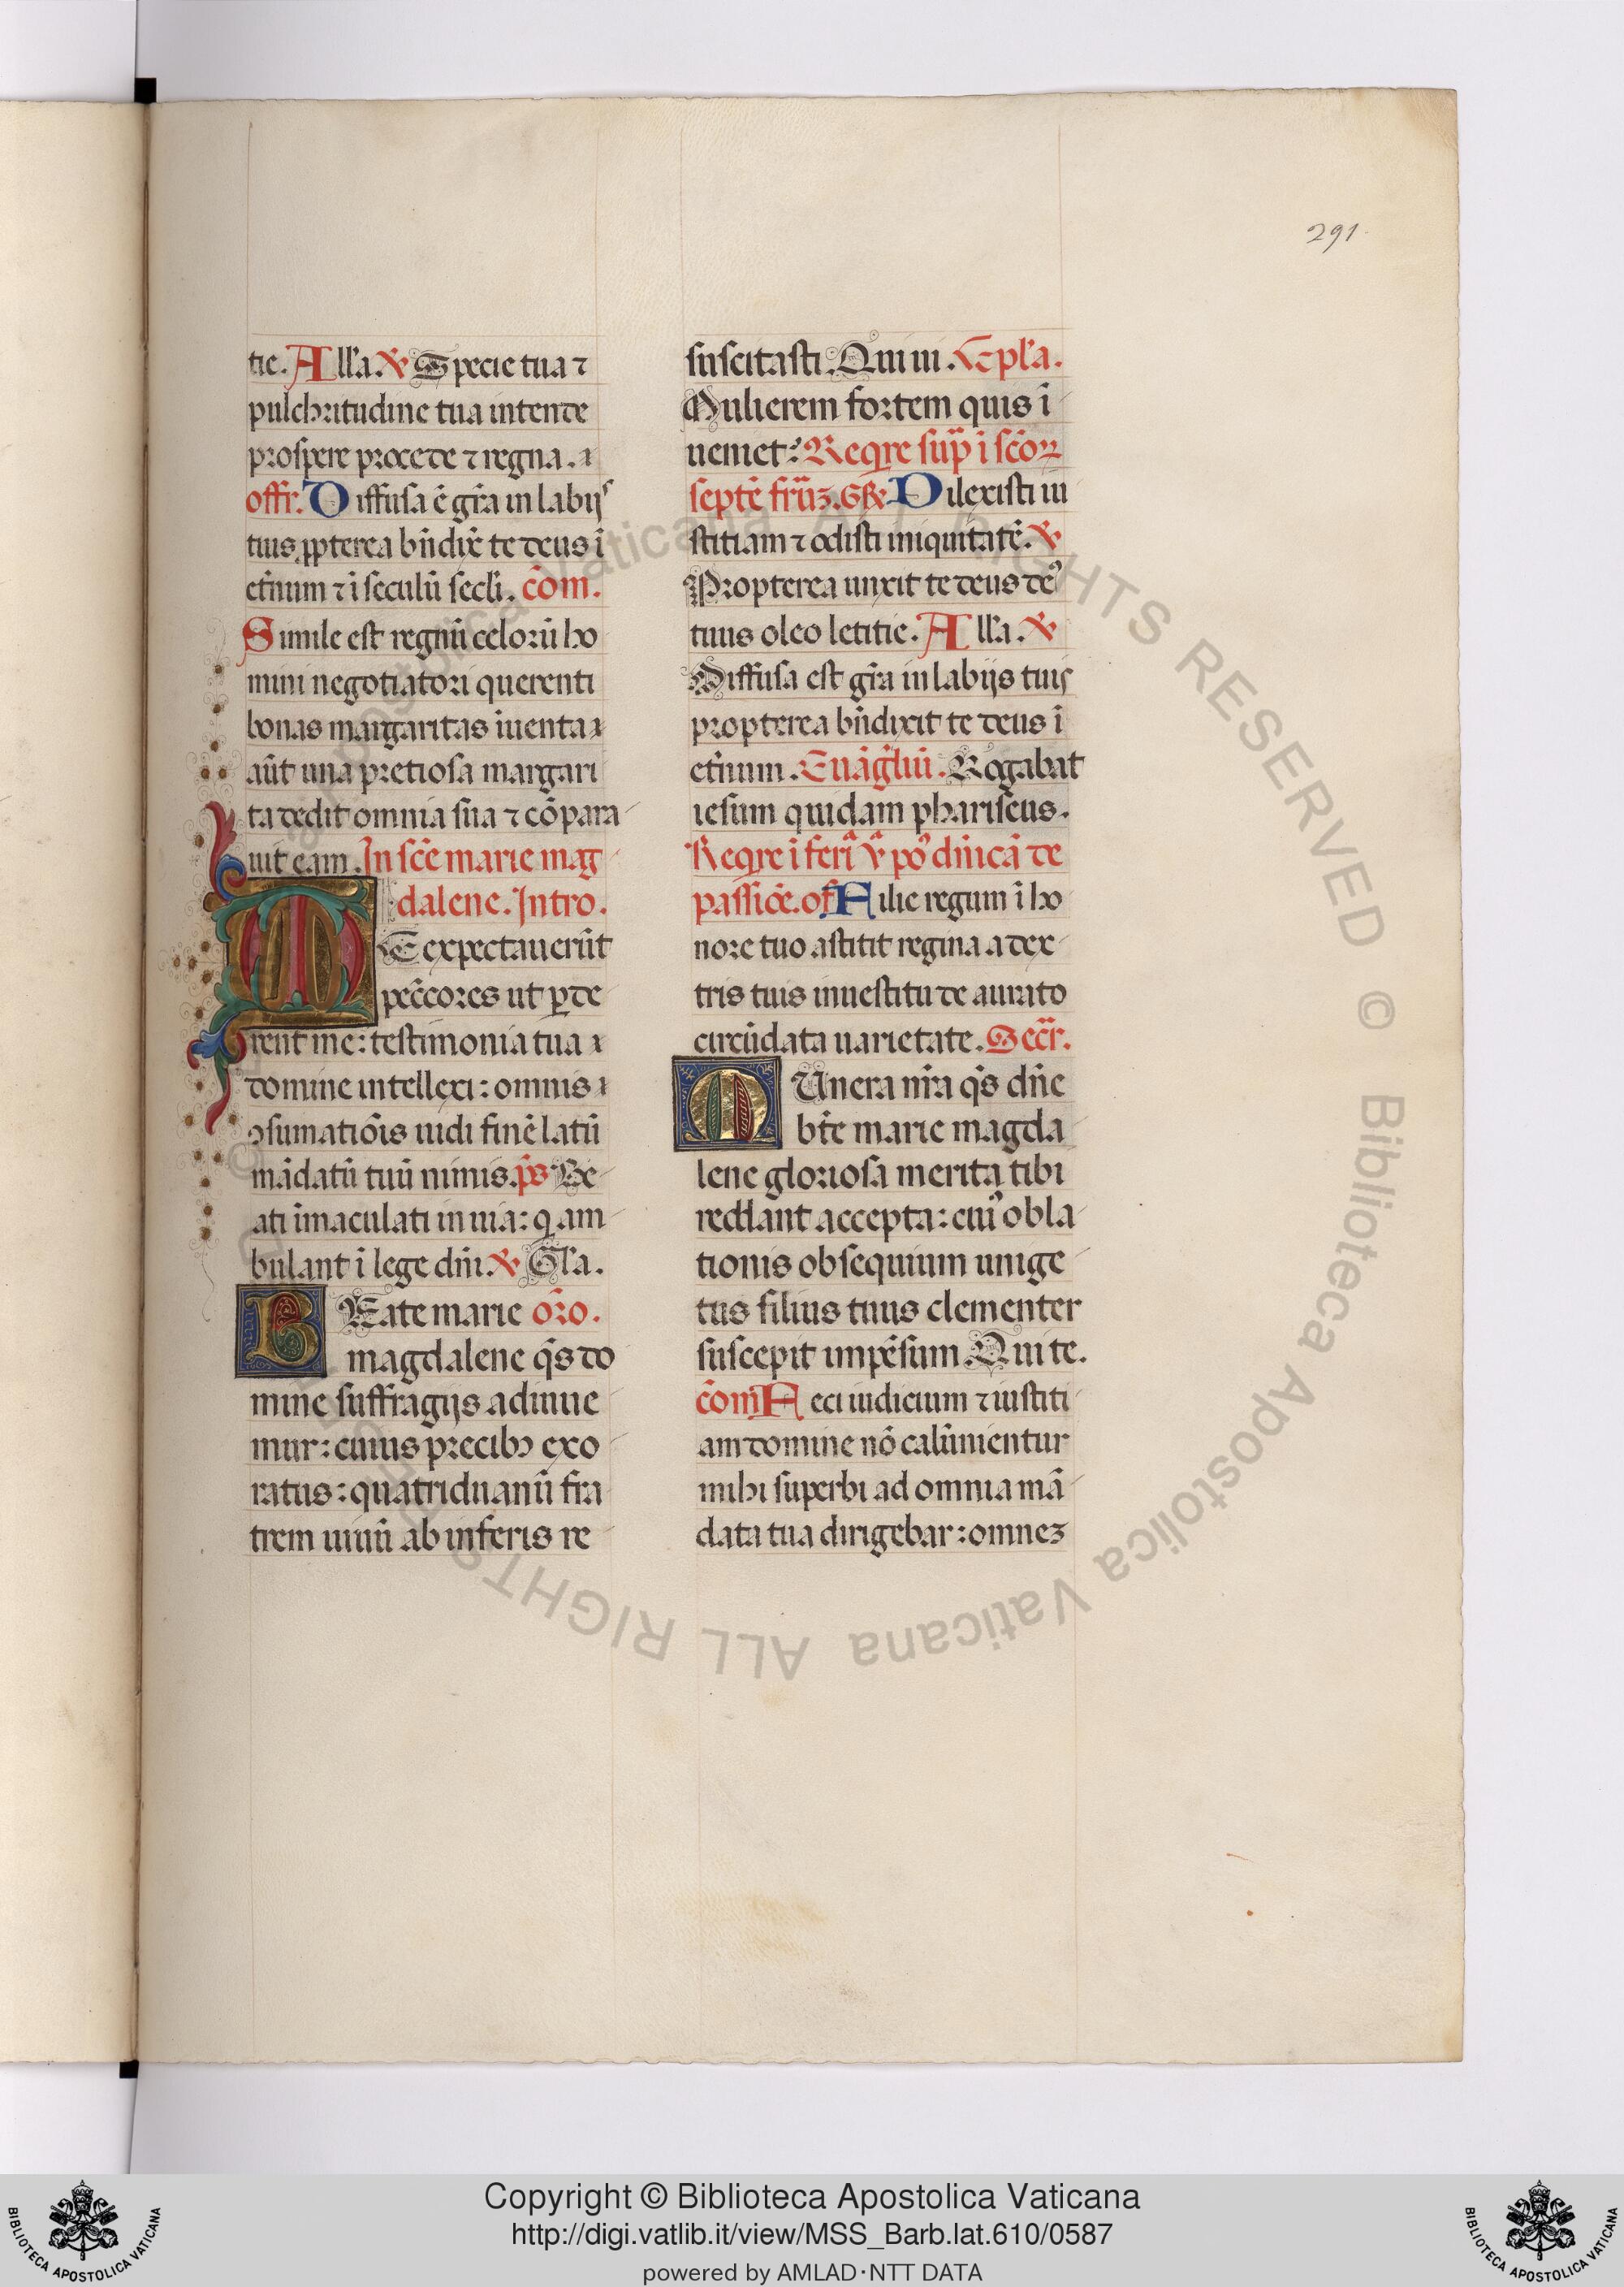 291
tie. Allˀa. ℣ Specie tua ⁊
pulchritudine tua intende
prospere procede ⁊ regna.
offr. Diffusa ē gr̄a in labijs
tuis ꝓpterea bn̄dix̄ te deus ī
et̄num ⁊ ī seculū secl̄i. cōm.
Simile est regnū celorū ho
mini negotiatori querenti
bonas margaritas iuenta
aūt una pretiosa margari
ta dedit omnia sua ⁊ cōpara
uit eam. In sc̄e marie mag
dalene. Intro.
ME expectauerūt
pec̄cores ut ꝑde
rent me: testimonia tua
domine intellexi: omnis
ꝯsumatiōis uidi finē latū
mādatū tuū nimis. p̄s Be
ati īmaculati in uia: q̄ am
bulant ī lege dn̄i. ℣ Gl̄a.
BEate marie or̄o.
magdalene q̄s do
mine suffragijs adiuue
mur: cuius precibꝰ exo
ratus: quatriduanū fra
trem uiuū ab inferis re
suscitasti. Qui ui. Epl̄a.
Mulierem fortem quis ī
ueniet? Reqre sup̄ ī sc̄oꝝ
septē fr̄uꝫ. GR̄ Dilexisti iu
stitiam ⁊ odisti iniquitatē. ℣
Propterea unxit te deus deꝰ
tuus oleo letitie. All̄a. ℣
Diffusa est gr̄a in labijs tuis
propterea bn̄dixit te deus ī
et̄num. Euāgl̄iū. Rogabat
iesum quidam phariseus.
Reqre ī feri̅a v̄ poꝰ dn̄icā de
passiōe. of Filie regum ī ho
nore tuo astitit regina a dex
tris tuis inuestitu de aurato
circūdata uarietate. Secr̄.
MUnera nr̄a q̄s dn̄e
bt̄e marie magda
lene gloriosa merita tibi
reddant accepta: cuiꝰ obla
tionis obsequium unige
tus filius tuus clementer
suscepit impēsum Qui te.
cōm Feci iudicium ⁊ iustiti
am domine nō calūnientur
mihi superbi ad omnia mā
data tua dirigebar: omneꝫ
Copyright © Biblioteca Apostolica Vaticana
http://digi.vatlib.it/view/MSS_Barb.lat.610/0587
powered by AMLAD·NTT DATA
BIBLIOTECA APOSTOLICA VATICANA
BIBLIOTECA APOSTOLICA VATICANA
© Biblioteca Apostolica Vaticana ALL RIGHTS RESERVED